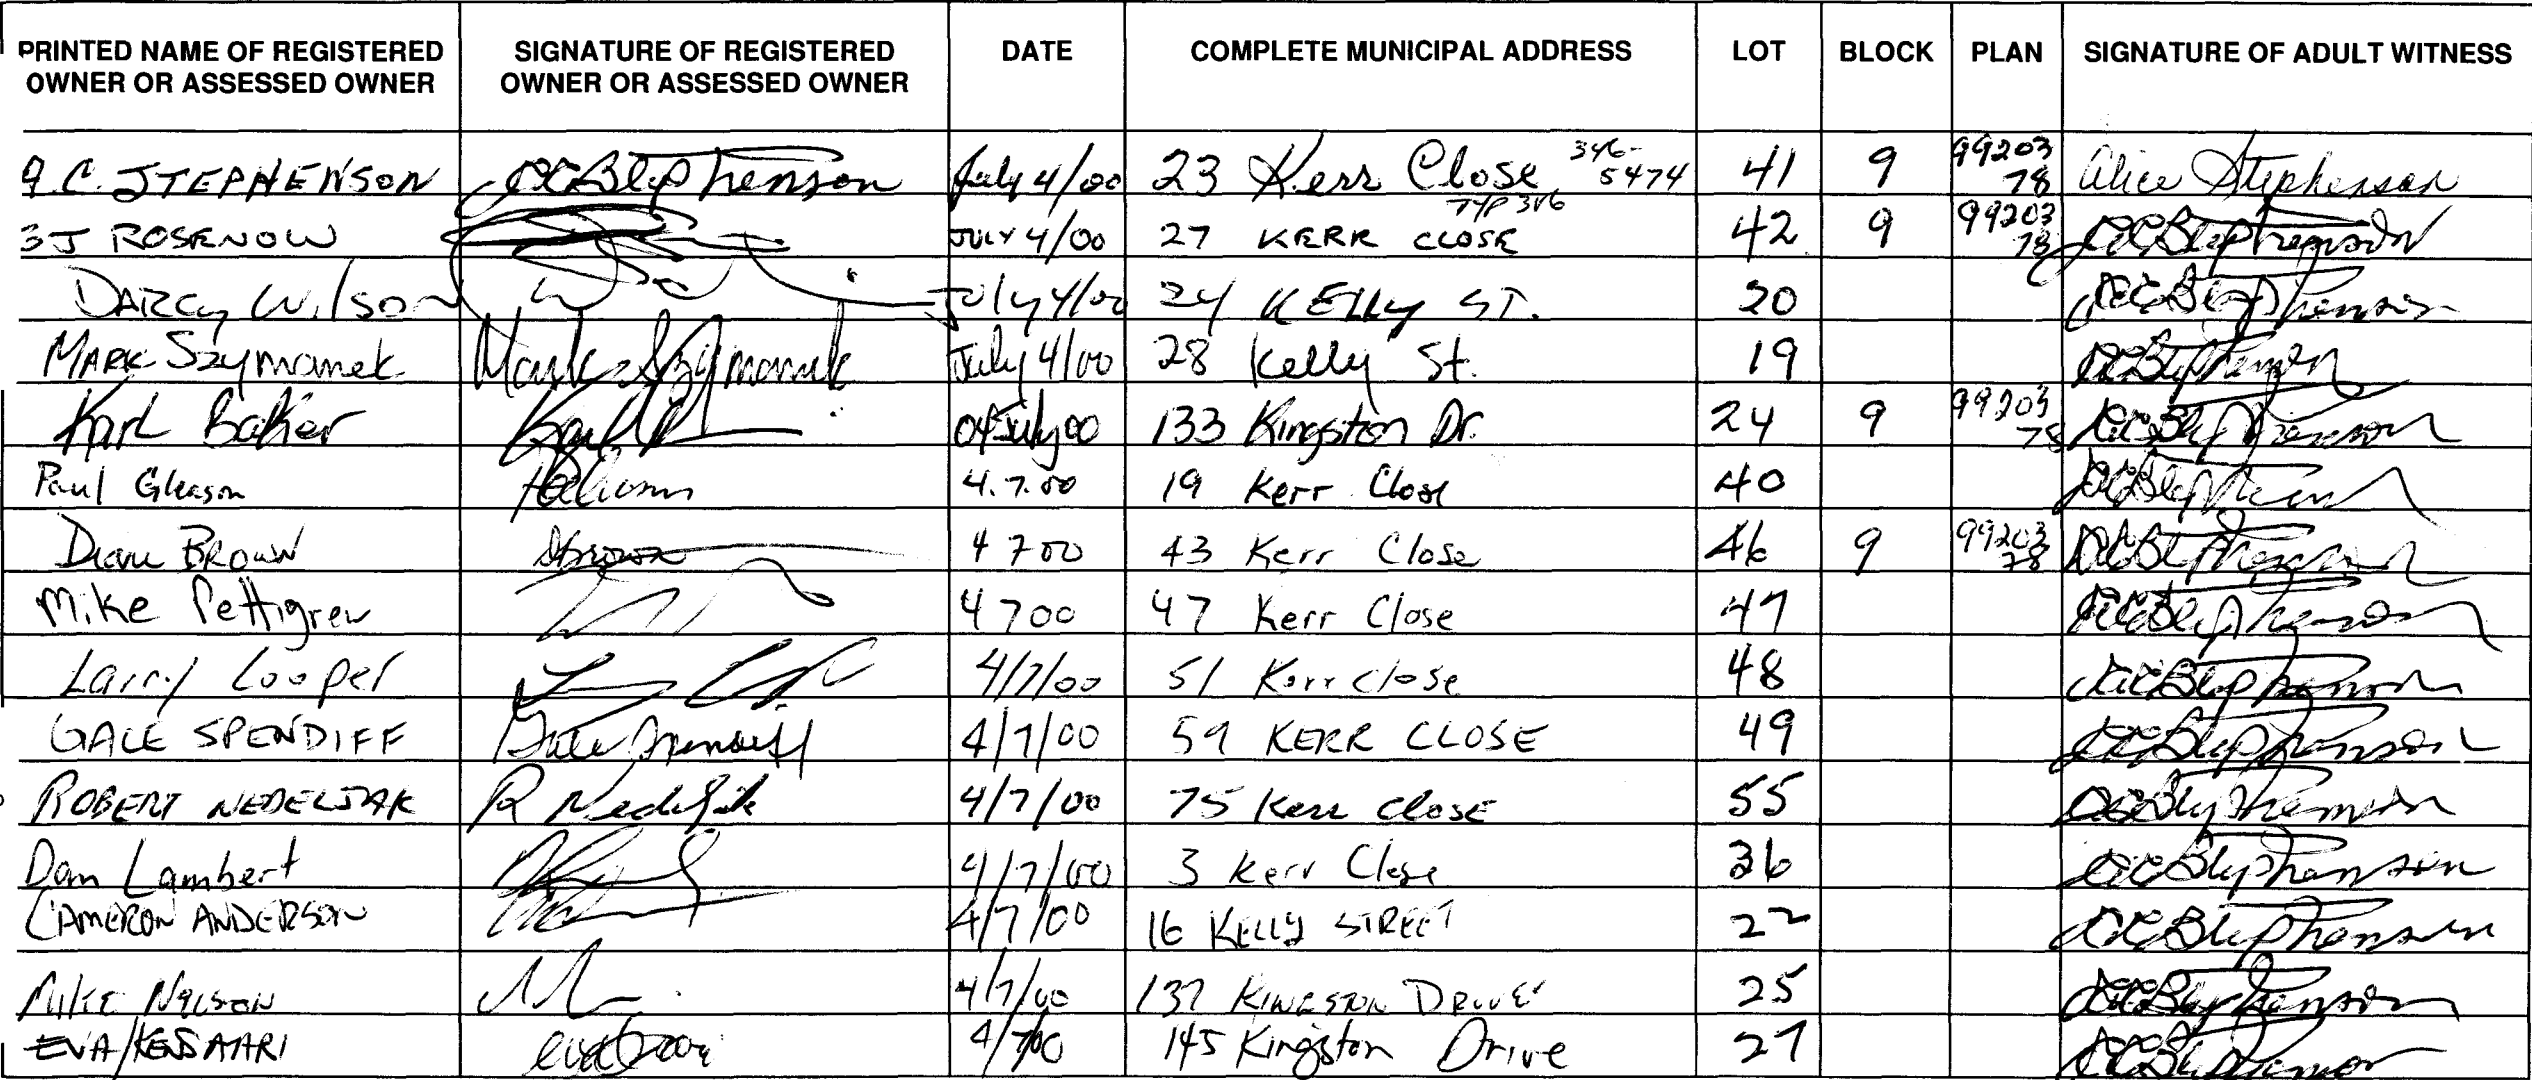 PRINTED NAME OF REGISTERED OWNER OR ASSESSED OWNER SIGNATURE OF REGISTERED OWNER OR ASSESSED OWNER DATE COMPLETE MUNICIPAL ADDRESS LOT BLOCK PLAN SIGNATURE OF ADULT WITNESS
A.C. STEPHENSON ACStephenson July 4/00 23 Kerr Close 346-5474 41 9 9920378 Alice Stephenson
BJ ROSENOW JULY 4/00 27 KERR CLOSE 42 9 9920378 ACStephenson
DARCY Wilson July 4/00 24 KElly ST. 20 ACStephenson
MARK Szymanek Mark Szymanek July 4/00 28 Kelly St. 19 ACStephenson
Karl Baker 04 July 00 133 Kingston Dr. 24 9 9920378 ACStephenson
Paul Gleason 4.7.00 19 Kerr Close 40 ACStephenson
Diane BROWN DBrown 4 7 00 43 Kerr Close 46 9 9920378 ACStephenson
Mike Pettigrew 4 7 00 47 Kerr Close 47 ACStephenson
Larry Cooper 4/7/00 51 Kerr Close 48 ACStephenson
GALE SPENDIFF Gale Spendiff 4/7/00 59 KERR CLOSE 49 ACStephenson
ROBERT NEDELJAK R Nedeljak 4/7/00 75 Kerr CLOSE 55 ACStephenson
Dan Lambert 4/7/00 3 Kerr Close 36 ACStephenson
CAMERON ANDERSON 4/7/00 16 KELLY STREET 22 ACStephenson
MIKE NELSON 4/7/00 137 KINGSTON DRIVE 25 ACStephenson
EVA/KEN SAARI 4/7/00 145 Kingston Drive 27 ACStephenson